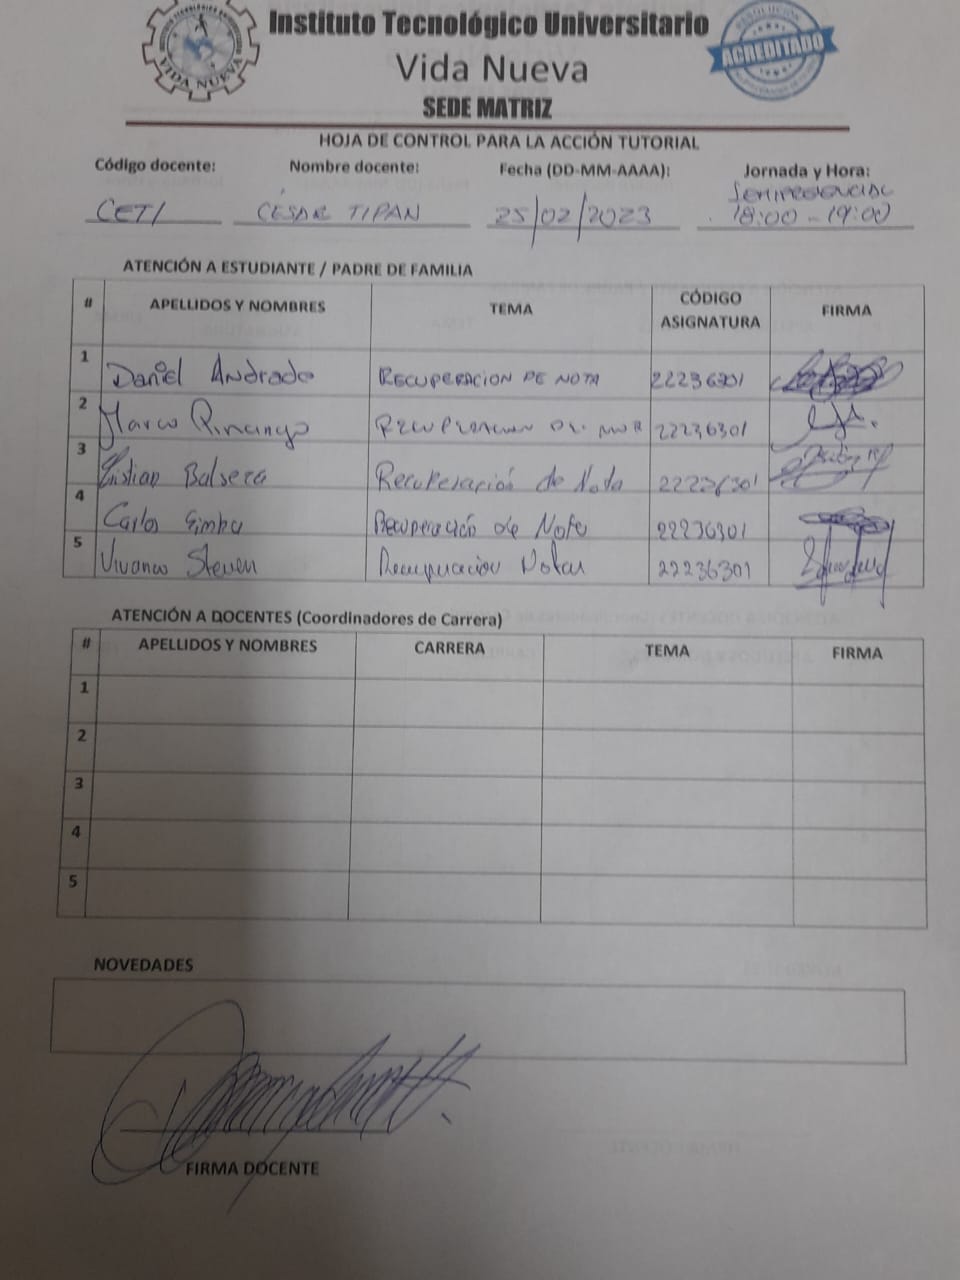 Instituto Tecnológico Universitario
Vida Nueva
SEDE MATRIZ
VIDA NUEVA
ACREDITADO
HOJA DE CONTROL PARA LA ACCIÓN TUTORIAL
Código docente: Nombre docente: Fecha (DD-MM-AAAA): Jornada y Hora:
SEMIPRESENCIAL
CETI CÉSAR TIPAN 25/02/2023 18:00-19:00
ATENCIÓN A ESTUDIANTE / PADRE DE FAMILIA
# APELLIDOS Y NOMBRES TEMA CÓDIGO ASIGNATURA FIRMA
1 Daniel Andrade RECUPERACION DE NOTA 22236301
2 Marco 22236301
3 Cristian Balseca Recuperación de Nota 22236301
4 Carlos Simba Recuperació de Note 22236301
5 Vivanco Steven 22236301
ATENCIÓN A DOCENTES (Coordinadores de Carrera)
# APELLIDOS Y NOMBRES CARRERA TEMA FIRMA
1
2
3
4
5
NOVEDADES
FIRMA DOCENTE